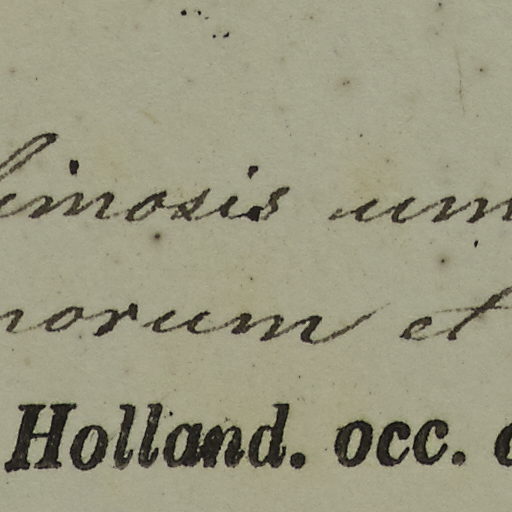 limosis um
norum et
Holland. occ.